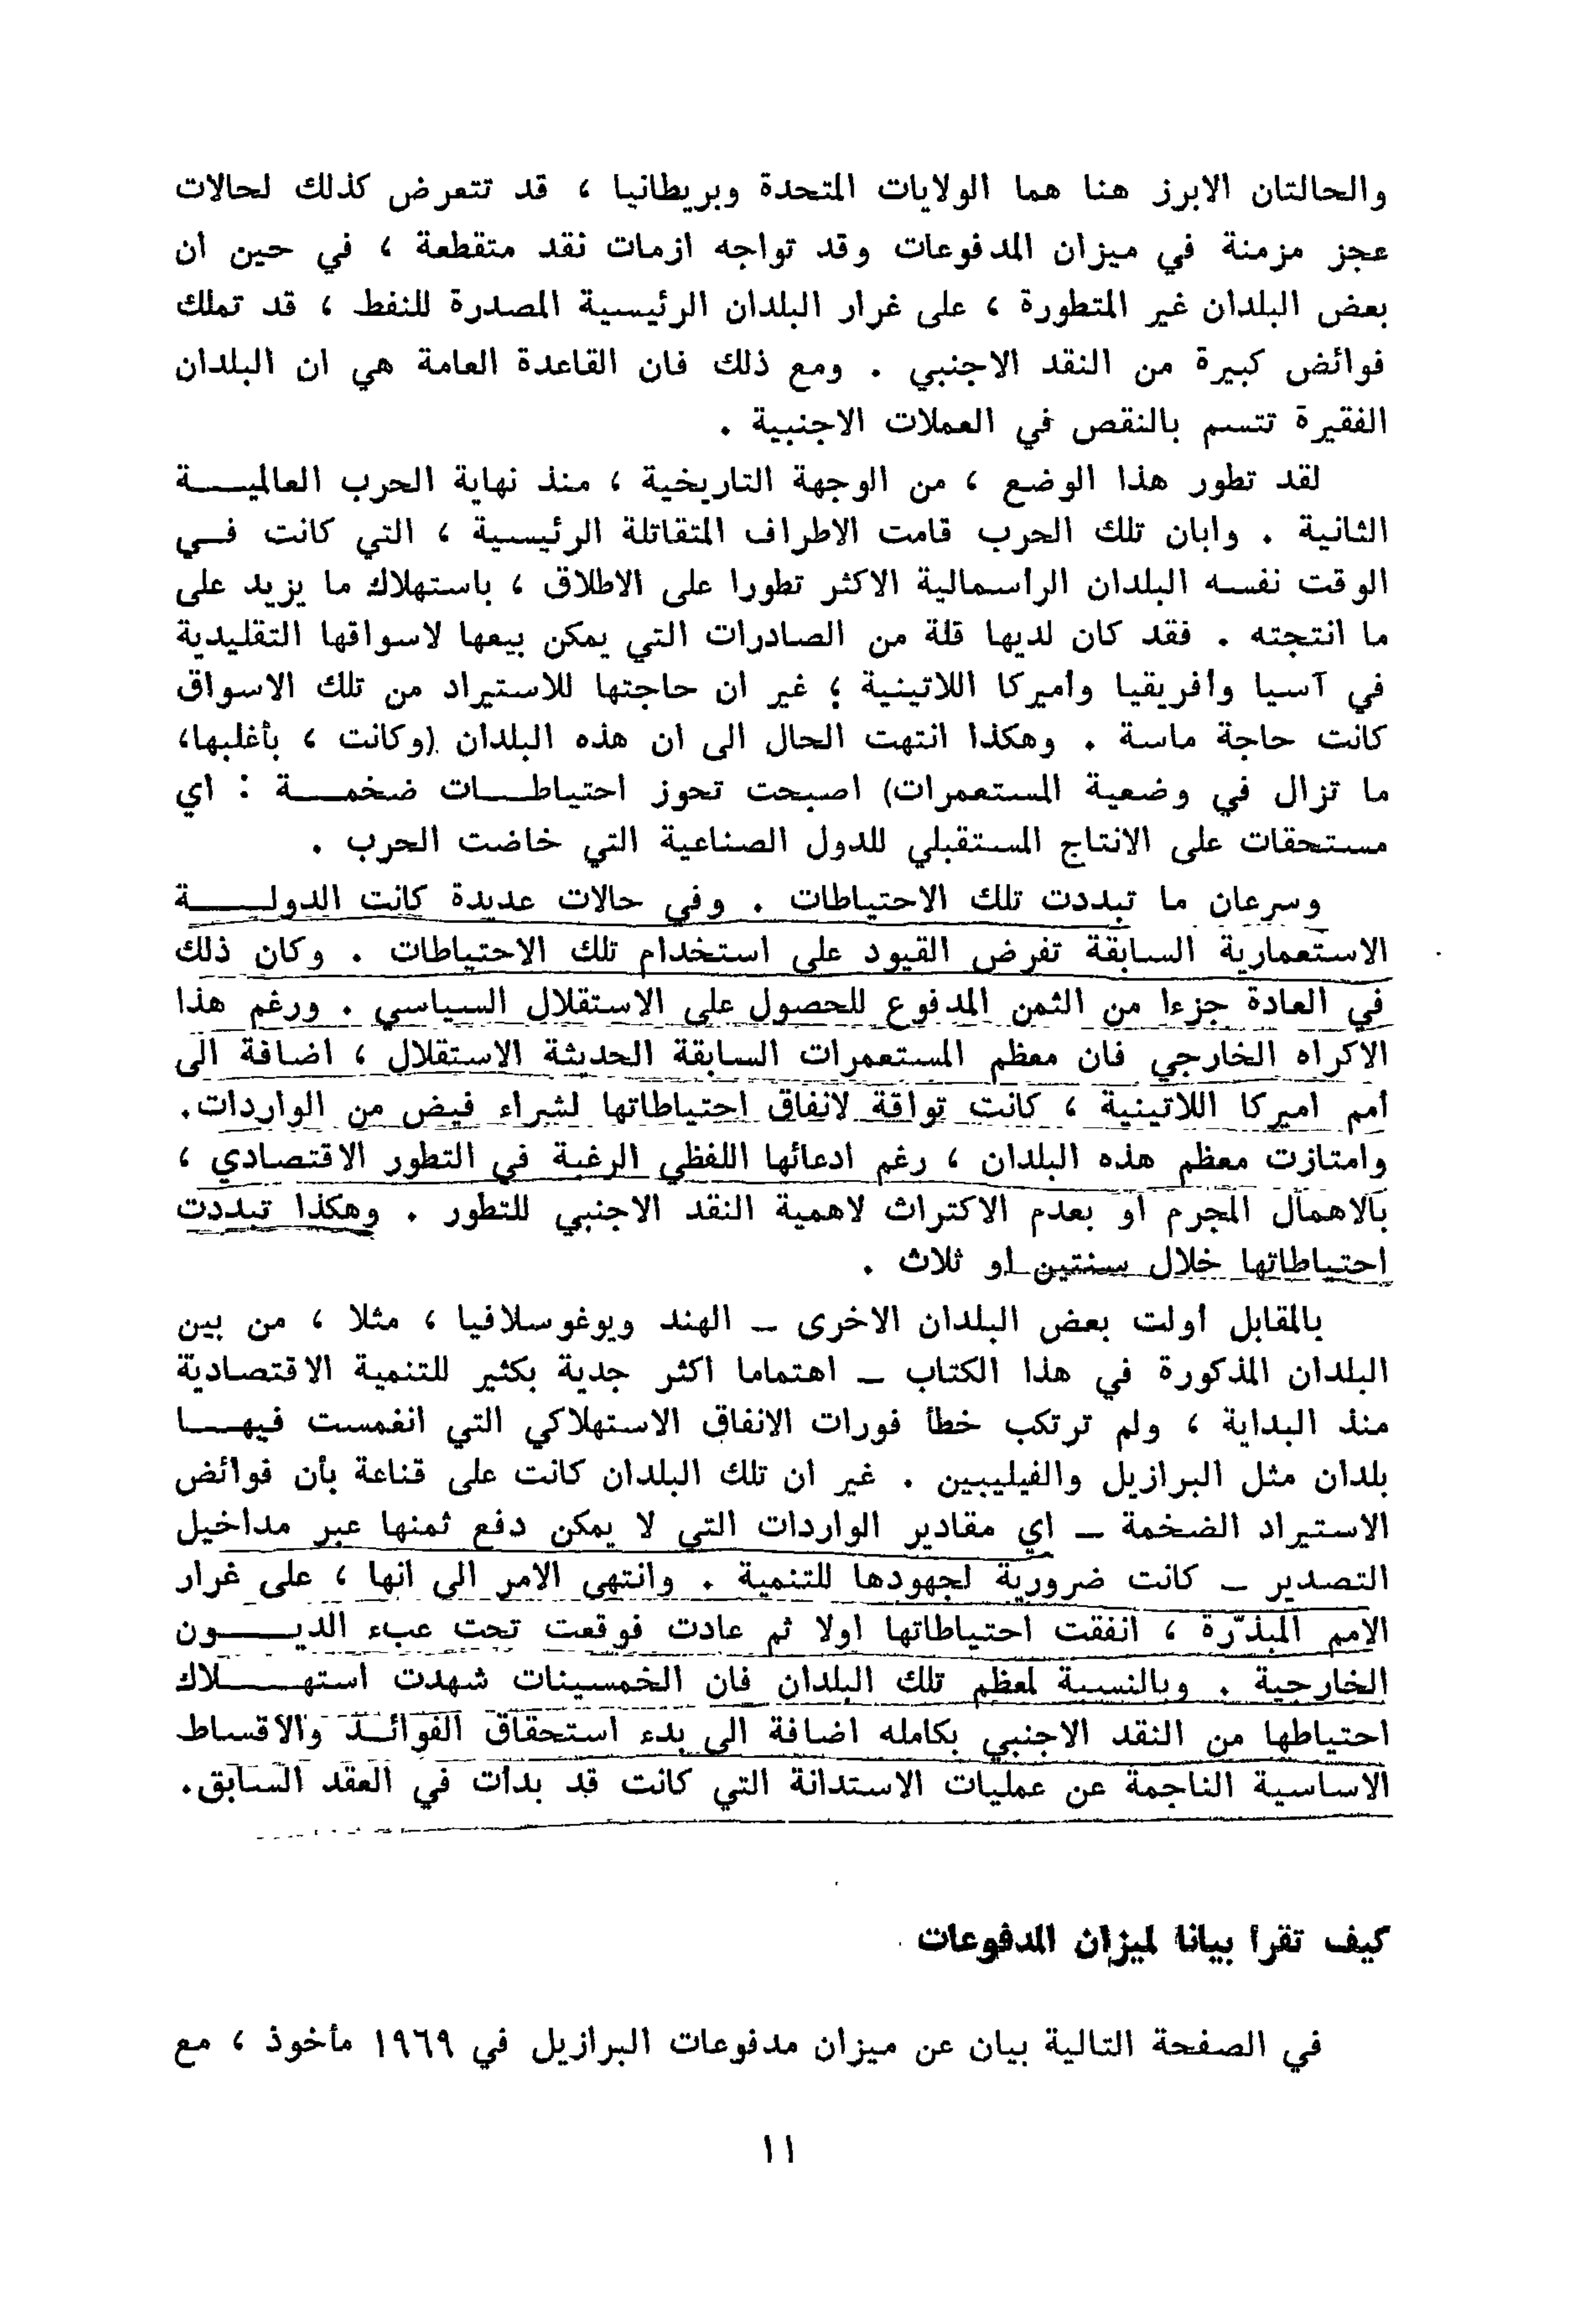 والحالتان الابرز هنا هما الولايات المتحدة وبريطانيا ، قد تتعرض كذلك لحالات
عجز مزمنة في ميزان المدفوعات وقد تواجه ازمات نقد متقطعة ، في حين ان
بعض البلدان غير المتطورة ، على غرار البلدان الرئيسية المصدرة للنفط ، قد تملك
فوائض كبيرة من النقد الاجنبي . ومع ذلك فان القاعدة العامة هي ان البلدان
الفقيرة تتسم بالنقص في العملات الاجنبية .
لقد تطور هذا الوضع ، من الوجهة التاريخية ، منذ نهاية الحرب العالميـــة
الثانية . وابان تلك الحرب قامت الاطراف المتقاتلة الرئيسية ، التي كانت فـي
الوقت نفسه البلدان الرأسمالية الاكثر تطورا على الاطلاق ، باستهلاك ما يزيد على
ما انتجته . فقد كان لديها قلة من الصادرات التي يمكن بيعها لاسواقها التقليدية
في آسيا وأفريقيا وأميركا اللاتينية ؛ غير ان حاجتها للاستيراد من تلك الاسواق
كانت حاجة ماسة . وهكذا انتهت الحال الى ان هذه البلدان (وكانت ، بأغلبها،
ما تزال في وضعية المستعمرات) اصبحت تحوز احتياطـــات ضخمـــة : اي
مستحقات على الانتاج المستقبلي للدول الصناعية التي خاضت الحرب .
وسرعان ما تبددت تلك الاحتياطات . وفي حالات عديدة كانت الدولـــة
الاستعمارية السابقة تفرض القيود على استخدام تلك الاحتياطات . وكان ذلك
في العادة جزءا من الثمن المدفوع للحصول على الاستقلال السياسي . ورغم هذا
الاكراه الخارجي فان معظم المستعمرات السابقة الحديثة الاستقلال ، اضافة الى
أمم اميركا اللاتينية ، كانت تواقة لانفاق احتياطاتها لشراء فيض من الواردات.
وامتازت معظم هذه البلدان ، رغم ادعائها اللفظي الرغبة في التطور الاقتصادي ،
بالاهمال المجرم او بعدم الاكتراث لاهمية النقد الاجنبي للتطور . وهكذا تبددت
احتياطاتها خلال سنتين او ثلاث .
بالمقابل أولت بعض البلدان الاخرى ــ الهند ويوغوسلافيا ، مثلا ، من بين
البلدان المذكورة في هذا الكتاب ــ اهتماما اكثر جدية بكثير للتنمية الاقتصادية
منذ البداية ، ولم ترتكب خطأ فورات الانفاق الاستهلاكي التي انغمست فيهـــا
بلدان مثل البرازيل والفيليبين . غير ان تلك البلدان كانت على قناعة بأن فوائض
الاستيراد الضخمة ــ اي مقادير الواردات التي لا يمكن دفع ثمنها عبر مداخيل
التصدير ــ كانت ضرورية لجهودها للتنمية . وانتهى الامر الى انها ، على غرار
الامم المبذّرة ، انفقت احتياطاتها اولا ثم عادت فوقعت تحت عبء الديـــون
الخارجية . وبالنسبة لمعظم تلك البلدان فان الخمسينات شهدت استهـــلاك
احتياطها من النقد الاجنبي بكامله اضافة الى بدء استحقاق الفوائــد والاقساط
الاساسية الناجمة عن عمليات الاستدانة التي كانت قد بدأت في العقد السابق.
كيف تقرأ بيانا لميزان المدفوعات
في الصفحة التالية بيان عن ميزان مدفوعات البرازيل في ١٩٦٩ مأخوذ ، مع
١١